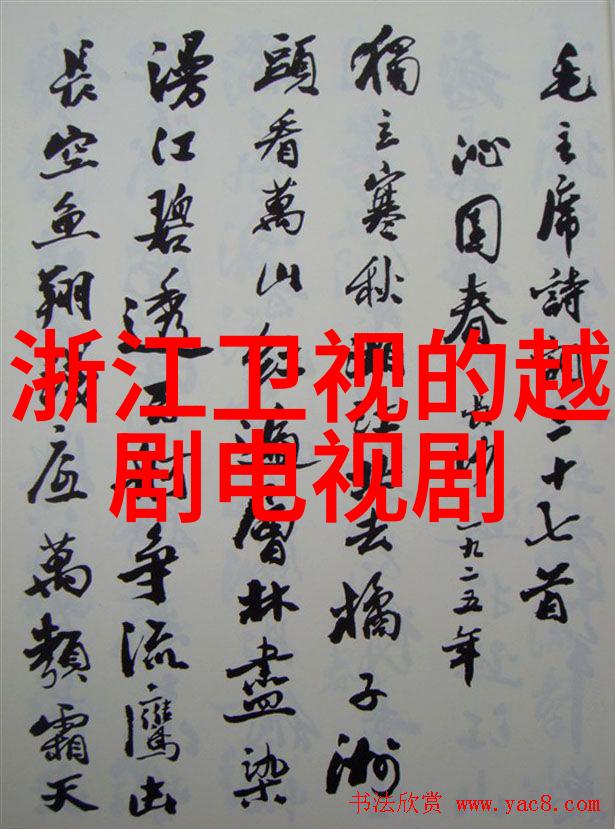 毛主席詩詞三十七首
沁園春 長沙 一九二五年
獨立寒秋湘江北去橘子洲
頭看萬山红遍層林盡染
漫江碧透百舸争流鷹击
長空魚翔淺底萬類霜天
浙江卫视的越
剧电视剧
书法欣赏 www.yac8.com